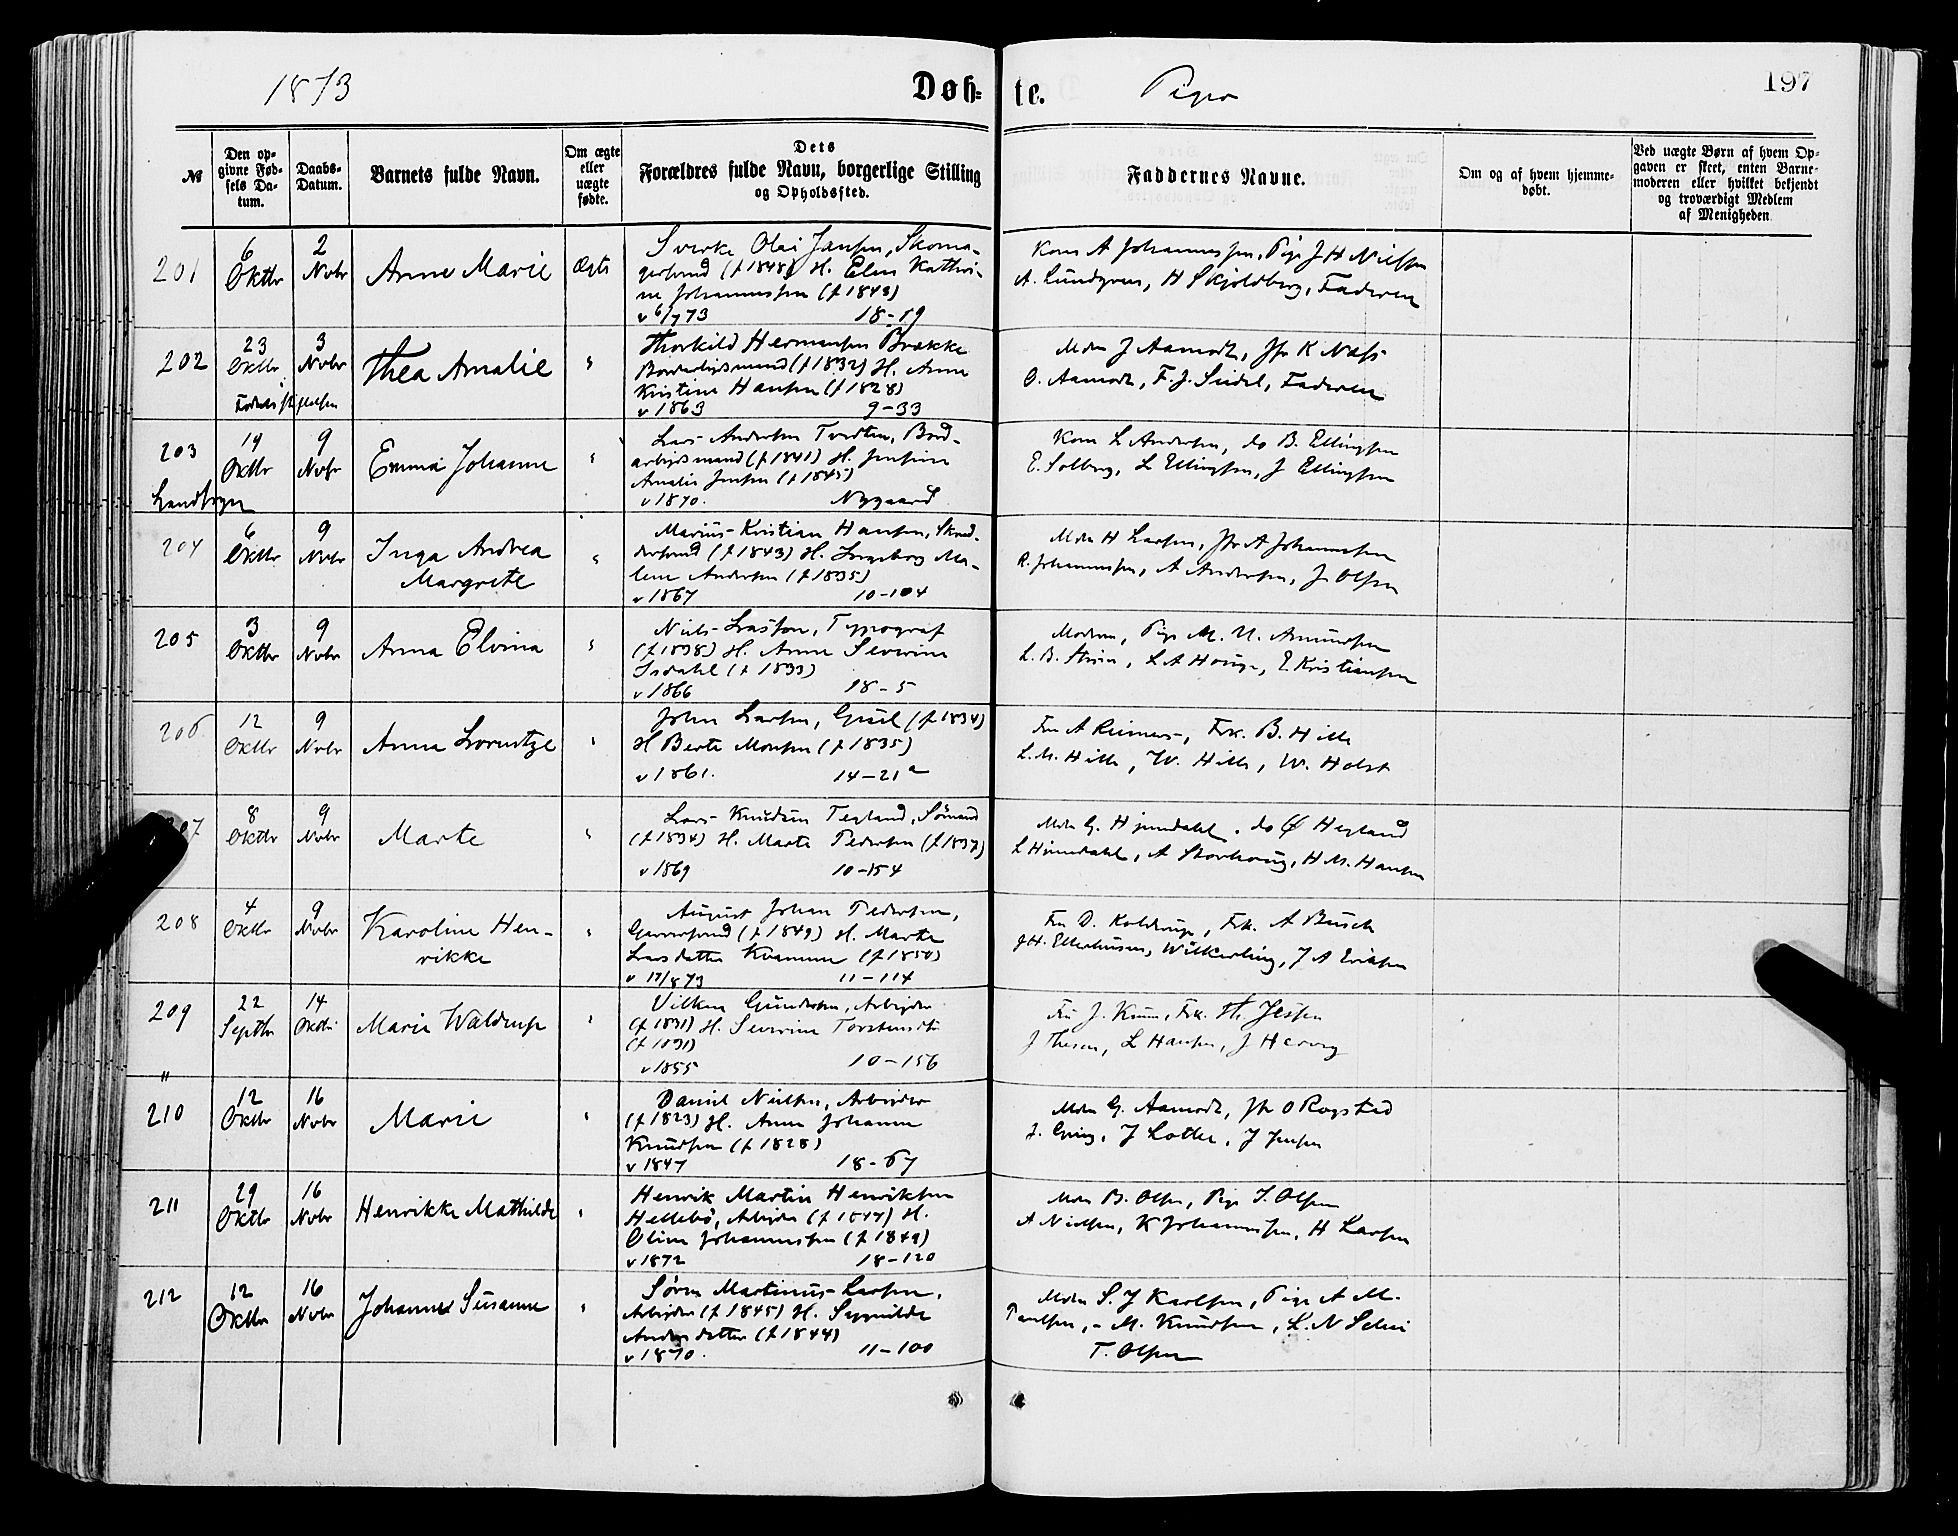 1873
Døb-te.
197
№
Den op-
givne Fød-
sels Da-
tum.
Daabs-
Datum.
Barnets fulde Navn.
Om ægte
eller
uægte
fødte.
Dets
Forældres fulde Navn, borgerlige Stilling
og Opholdssted.
Faddernes Navne.
Om og af hvem hjemme-
døbt.
Ved uægte Børn af hvem Op-
gaven er skeet, enten Barne-
moderen eller hvilket bekjendt
og troværdigt Medlem
af Menigheden
201
6 Oktbr
2 Novbr
Anne Marie
Ægte
Sverke Olai Jansen, Skoma-
gersvend (f 1848) H. Elen Kathri-
ne Johannessen (f 1848)
v 6/7 73 18-19
Kone A Johannessen, Pige J H Nielsen
A. Lundgren, H Skjoldberg, Faderen
202
23 Oktbr
3 Novbr
Thea Amalie
Thorkild Hermansen Brække
Bordarbejdsmand (f 1832) H. Anne
Kristine Hansen (f 1828)
v 1863 9-33
Mdm J Aamodt, Jfr K Næss
O. Aamodt, F. J. Seidel, Faderen
203
19 Oktbr
9 Novbr
Landsogn
Emma Johanne
Lars Andersen Tvedten, Bord-
arbejdsmand (f 1841) H. Jensine
Amalie Jensen (f 1845)
v 1870. Nygaard
Kone L Andersen, do B. Ellingsen
E. Solberg, L Ellingsen, J Ellingsen
204
6 Oktbr
9 Novbr
Inga Andrea
Margrete
Marius Kristian Hansen, Skræd-
dersvend (f 1843) H. Ingeborg Ma-
lene Andersen (f 1835)
v 1867 10-104
Mdm H Larsen, Jfr A Johannessen
R. Johannessen, A Andersen, J Olsen
205
3 Oktbr
9 Novbr
Anna Elvina
Niels Larsen, Typograf
(f 1838) H. Anne Severine
Isdahl (f 1833)
v 1866 18-5
Moderen, Pige M. N. Amundsen
L. B. Strøm, L A Houge, E Kristiansen
206
12 Oktbr
9 Novbr
Anna Lorentze
John Larsen, (f 1834)
H Berte Monsen (f 1835)
v 1861. 14-21a
Fru A Reimers, Frk. B. Hille
L. M. Hille, W. Hille, W. Holst
8 Oktbr
9 Novbr
Marte
Lars Knudsen Tegland, Sømand
(f 1834) H. Marte Pedersen (f 1837)
v 1869 10-154
Mdm G. Hjemdahl, do Ø Hegland
L Hjemdahl, A Storhoug, H M. Hansen
208
4 Oktbr
9 Novbr
Karoline Hen-
rikke
August Johan Pedersen,
Garversvend (f 1849) H. Marte
Larsdatter Kvamme (f 1850)
v 17/8 73 11-114
Fru D. Koldrup, Frk. A Busch
J H. Ellerhusen, Wilkerling, J A Eriksen
209
22 Septbr
14
Marie Waldrup
Vilken Gundersen, Arbejder
(f 1831) H. Severine Torstensdtr
(f 1831)
v 1855 10-156
Fru J. Krum, Frk. Th. Jessen
J Thesen, L Hansen, J Herweg
210
12 Oktbr
16 Novbr
Marie
Daniel Nielsen, Arbejder
(f 1823) H. Anne Johanne
Knudsen (f 1828)
v 1847 18-67
Mdm G. Aamodt, Jfr O Rogstad
J. Gring, J Lotte, J Jensen
211
29 Oktbr
16 Novbr
Henrikke Mathilde
Henrik Martin Henriksen
Hellebø, Arbejder (f 1847) H.
Oline Johannessen (f 1849)
v 1872 18-120
Mdm B. Olsen, Pige I. Olsen
A Nielsen, K Johannessen, H Larsen
212
12 Oktbr
16 Novbr
Johanne Susanne
Søren Martinus Larsen,
Arbejder (f 1845) H. Segnilde
Andersdatter (f 1844)
v 1870. 11-100
Mdm S. J Karlsen, Pige A M.
Paulsen, - M. Knudsen, L. N Selei
T. Olsen